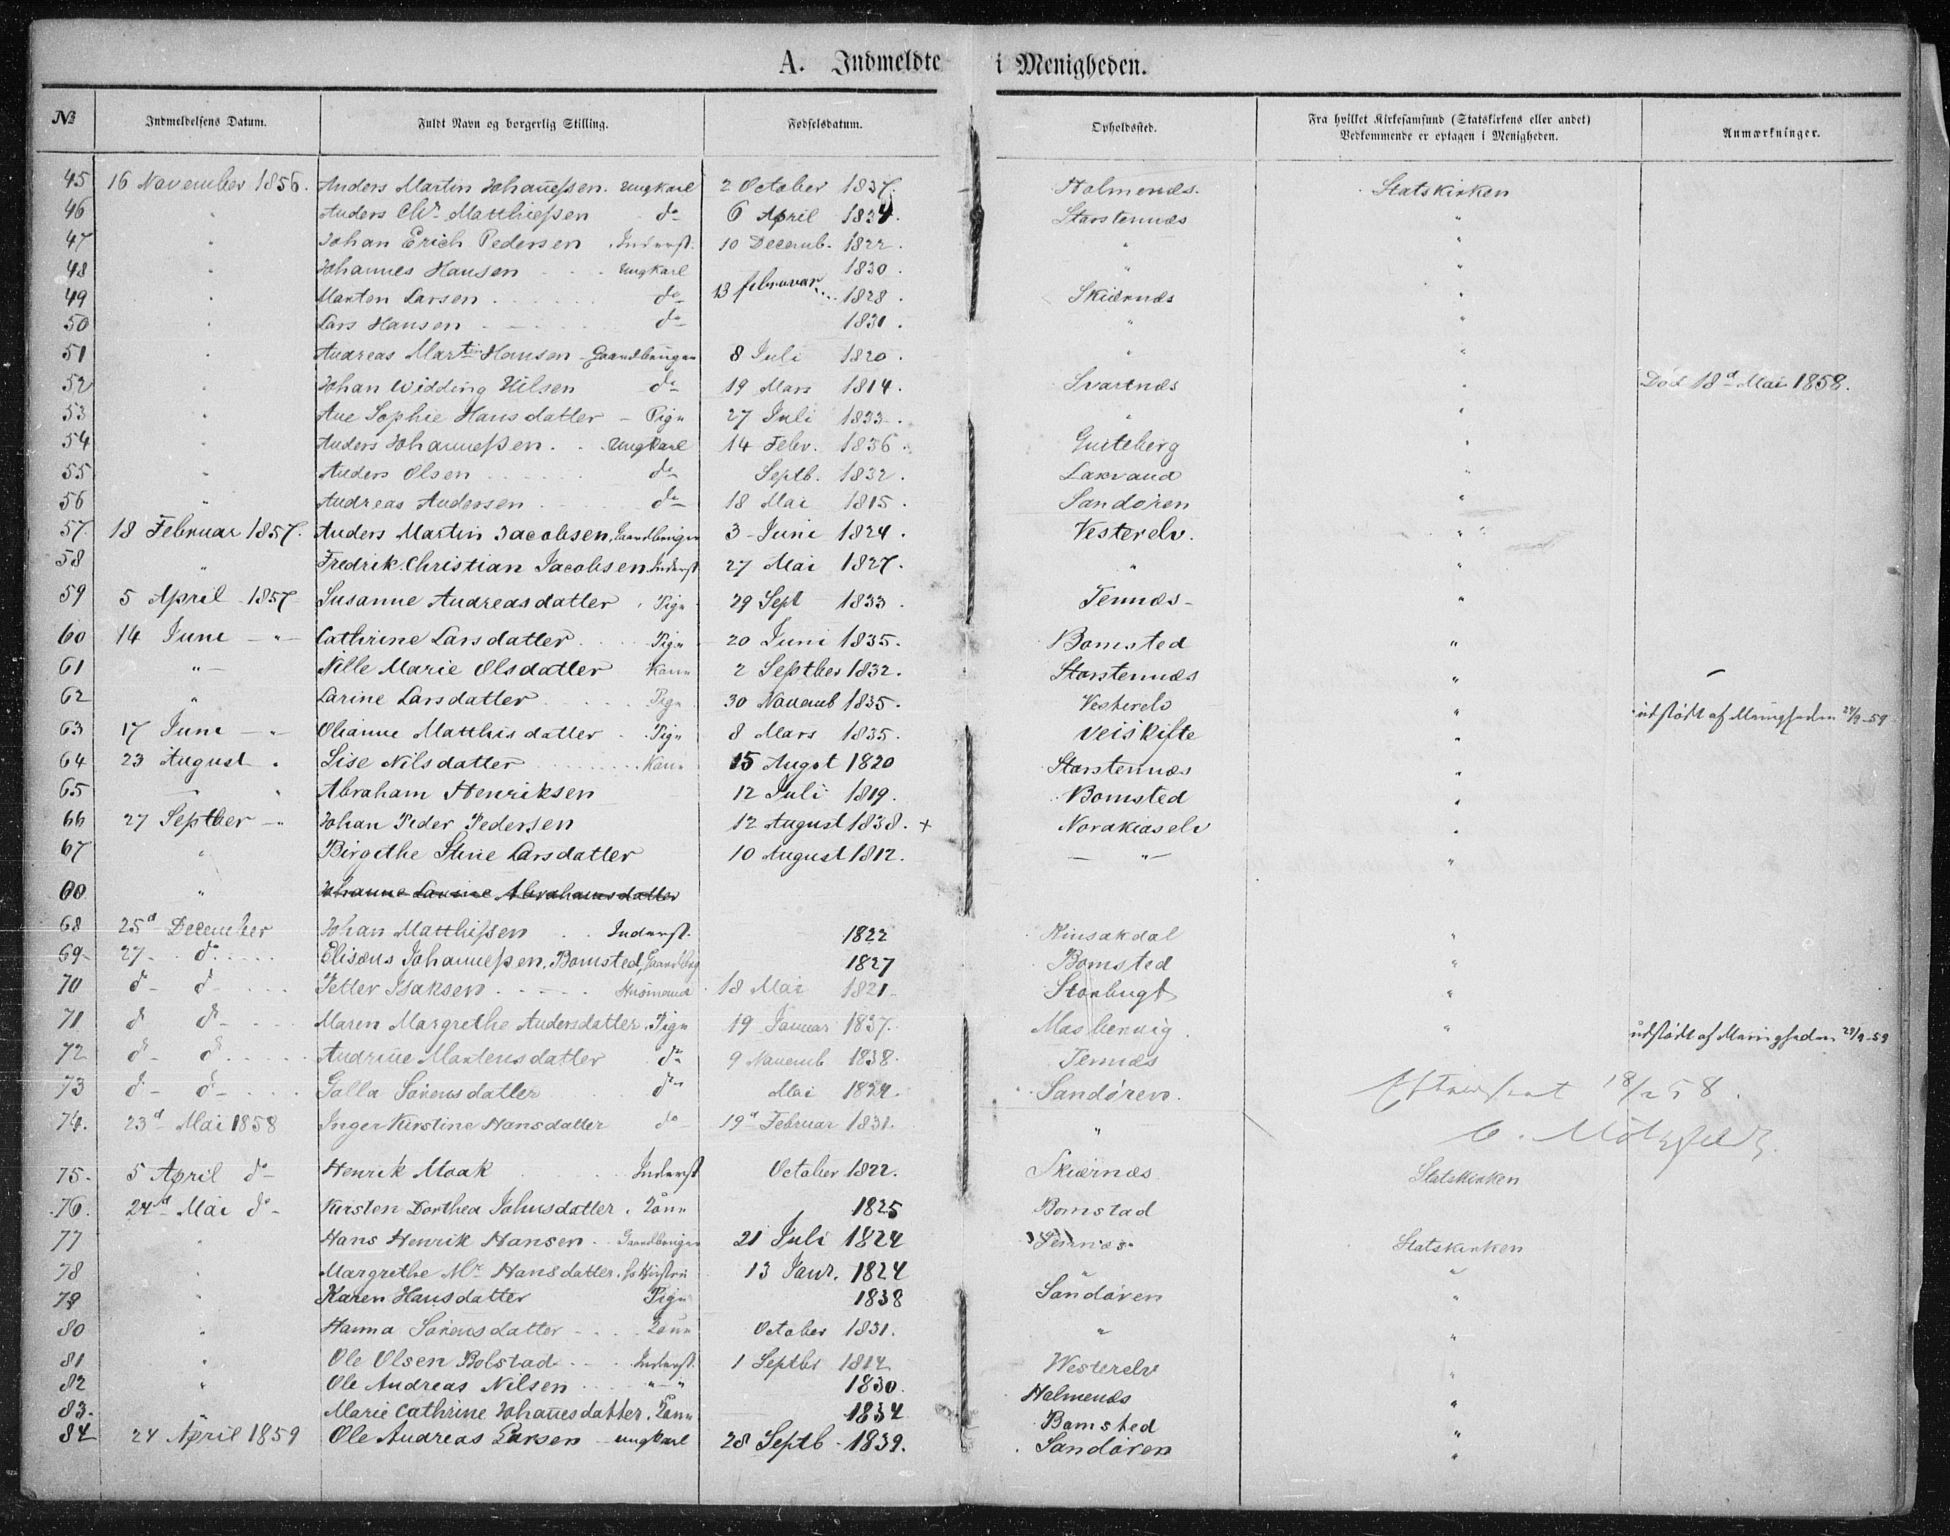 A. Indmeldte i Menigheden.
№ Indmeldelsens Datum. Fuldt Navn og borgerlig Stilling. Fødselsdatum. Opholdssted. Fra hvilket Kirkesamfund (Statskirkens eller andet) Vedkommende er optagen i Menigheden. Anmærkninger.
45 16 November 1856. Anders Martin Johaneſsen. Ungkarl 2 October 1837. Holmenæs. Statskirken
46 " Anders Chr Matthieſsen do 6 April 1834. Storstennæs "
47 " Johan Erich Pedersen Inderst. 10 Decemb. 1822. " "
48 " Johannes Hansen Ungkarl 1830. " "
49 " Morten Larsen do 13 februar 1828. Skiærnæs "
50 " Lars Hansen do 1831. " "
51 " Andreas Martin Hansen Gaardbruger 8 Juli 1820. " "
52 " Johan Widding Nilsen do 19 Mars 1814. Svartnæs " Död 18d Mai 1858.
53 " Ane Sophie Hansdatter Pige 27 Juli 1833. " "
54 " Anders Johanneſsen. Ungkarl 14 Febr. 1836. "
55 " Anders Olsen do Septb. 1832. Laxvand "
56 " Andreas Andersen do 18 Mai 1815. Sandøren "
57. 18 Februar 1857. Anders Martin Jacobsen, Gaardbruger 3 Juni 1824. Vesterelv. "
58 " Fredrik Christian Jacobsen Inderst 27 Mai 1827. " "
59 5 April 1857 Susanne Andreasdatter Pige 29 Sept 1833. Tennæs "
60 14 Juni " Cathrine Larsdatter Pige 20 Juni 1835. Bomsted "
61 " Nille Marie Olsdatter Kone 2 Septber 1832. Storstennæs "
62 " Larine Larsdatter Pige 30 Novemb 1835. Vesterelv " udstödt af Menigheden 29/9-59
63 17 Juni " Olianne Matthisdatter Pige 8 Mars 1835. Veiskifte "
64 23 August " Lise Nilsdatter Kone 15 Augst 1820 Storstennæs "
65 " Abraham Henriksen 12 Juli 1819. Bomsted "
66 27 Septber " Johan Peder Pedersen 12 August 1838. + Nordkiaselv "
67 " Birgithe Stine Larsdatter 10 August 1812. " "
60 " Johanne Larine Abrahamsdatter
68 25d December Johan Matthiſsen Inderst. 1822 "
69 27 do Elisæus Johanneſsen, Bomsted, Gaardbrug 1827 Bomsted "
70 d d Petter Isaksen Husmand 18 Mai 1821 Storbugt "
71 d d Maren Margrethe Andersdatter Pige 19 Januar 1837. " udstödt af Menigheden 29/9-59
72 d d Andrine Mortensdatter do 9 Novemb 1838. Tennæs
73 d d Galla Sörensdatter do Mai 1824. Sandøren. 18/2 58.
74. 23d Mai 1858 Inger Kirstine Hansdatter do 19d Februar 1831. "
75. 5 April do Henrik Moak Inderst October 1822. Skiærnæs Statskirken
76. 24d Mai do Kirsten Dorthea Johnsdatter, Kone 1825 Bomstad
77 " Hans Henrik Hansen Gaardbruger 21 Juli 1824 Tennæs Statskirken
78 " Margrethe Mr Hansdatter, hs Hustru 13 Janr. 1824 " "
79 " Karen Hansdatter Pige 1838 Sandøren "
80 " Hanna Sörensdatter Kone October 1831. " "
81 " Ole Olsen Bolstad Inderst. 1 Septbr 1814 Westerelv "
82 " Ole Andreas Nilsen " 1830. Holmenæs "
83. Marie Cathrine Johanesdatter, Kone 1834 Bomsted "
84 24 April 1859 Ole Andreas Larsen ungkarl 28 Septb 1839. Sandøren "